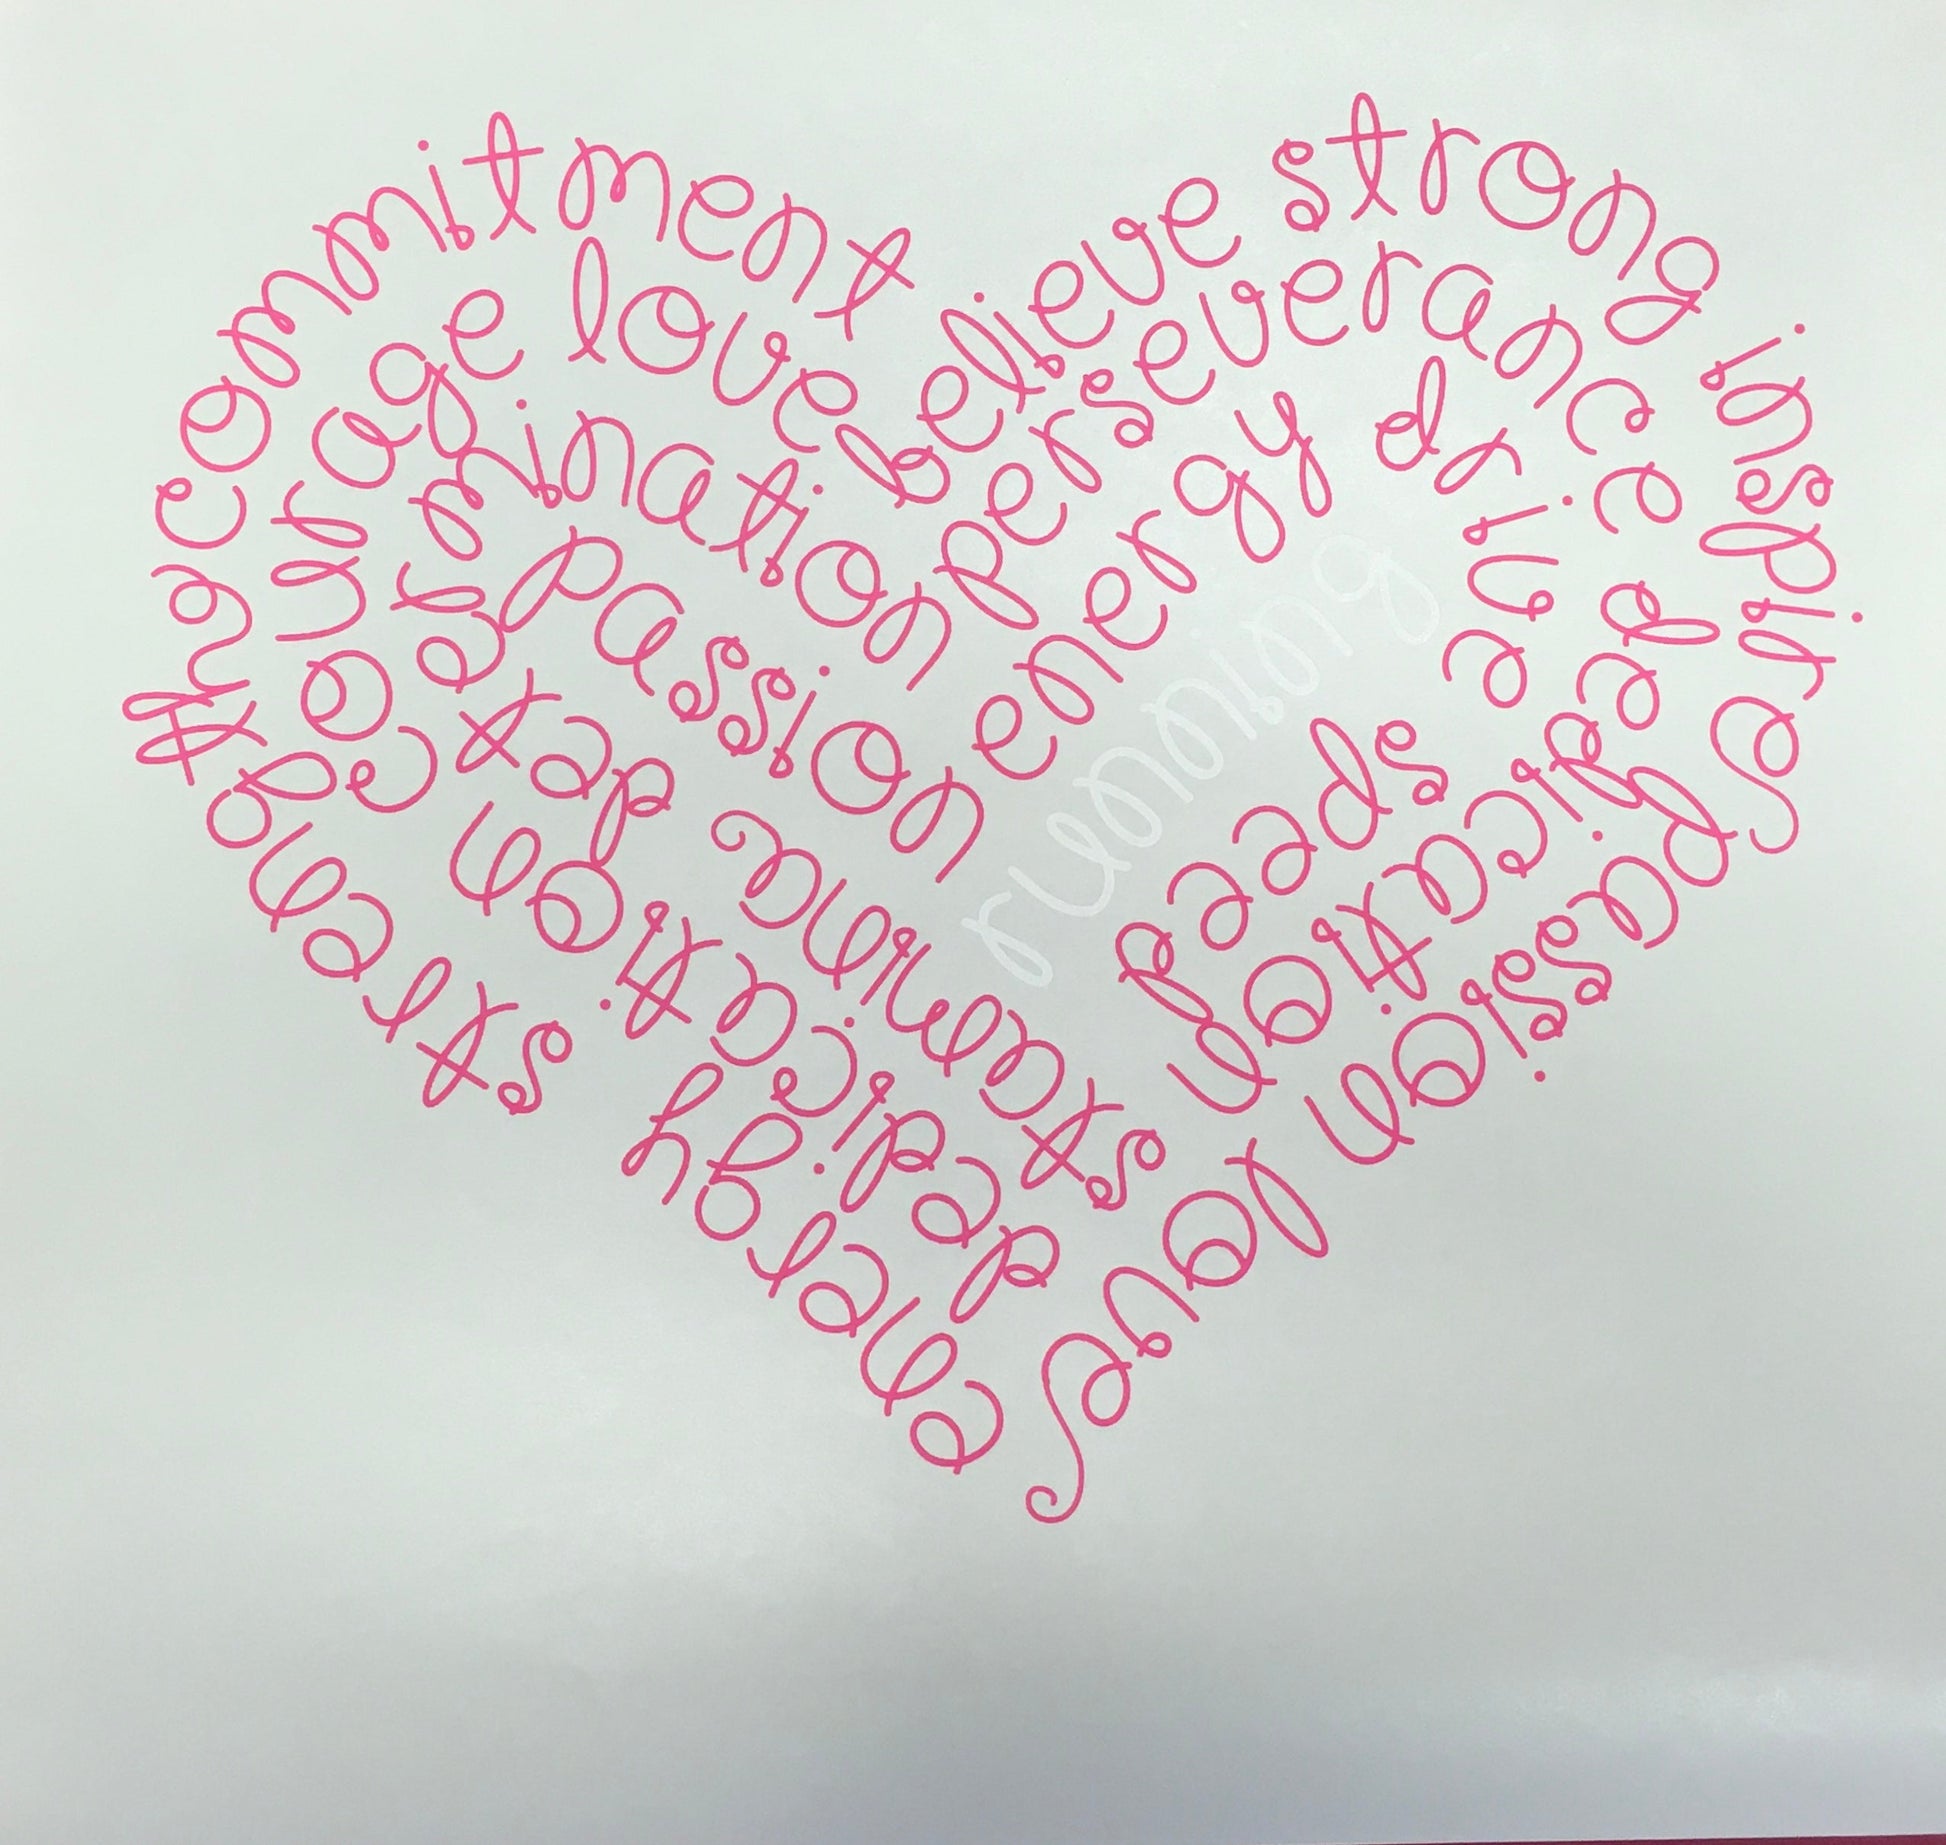 commitment
believe
strong
inspire
passion
love
energy
strength
courage
love
perseverance
dedication
dedication
determination
energy
drive
speed
stamina
passion
running